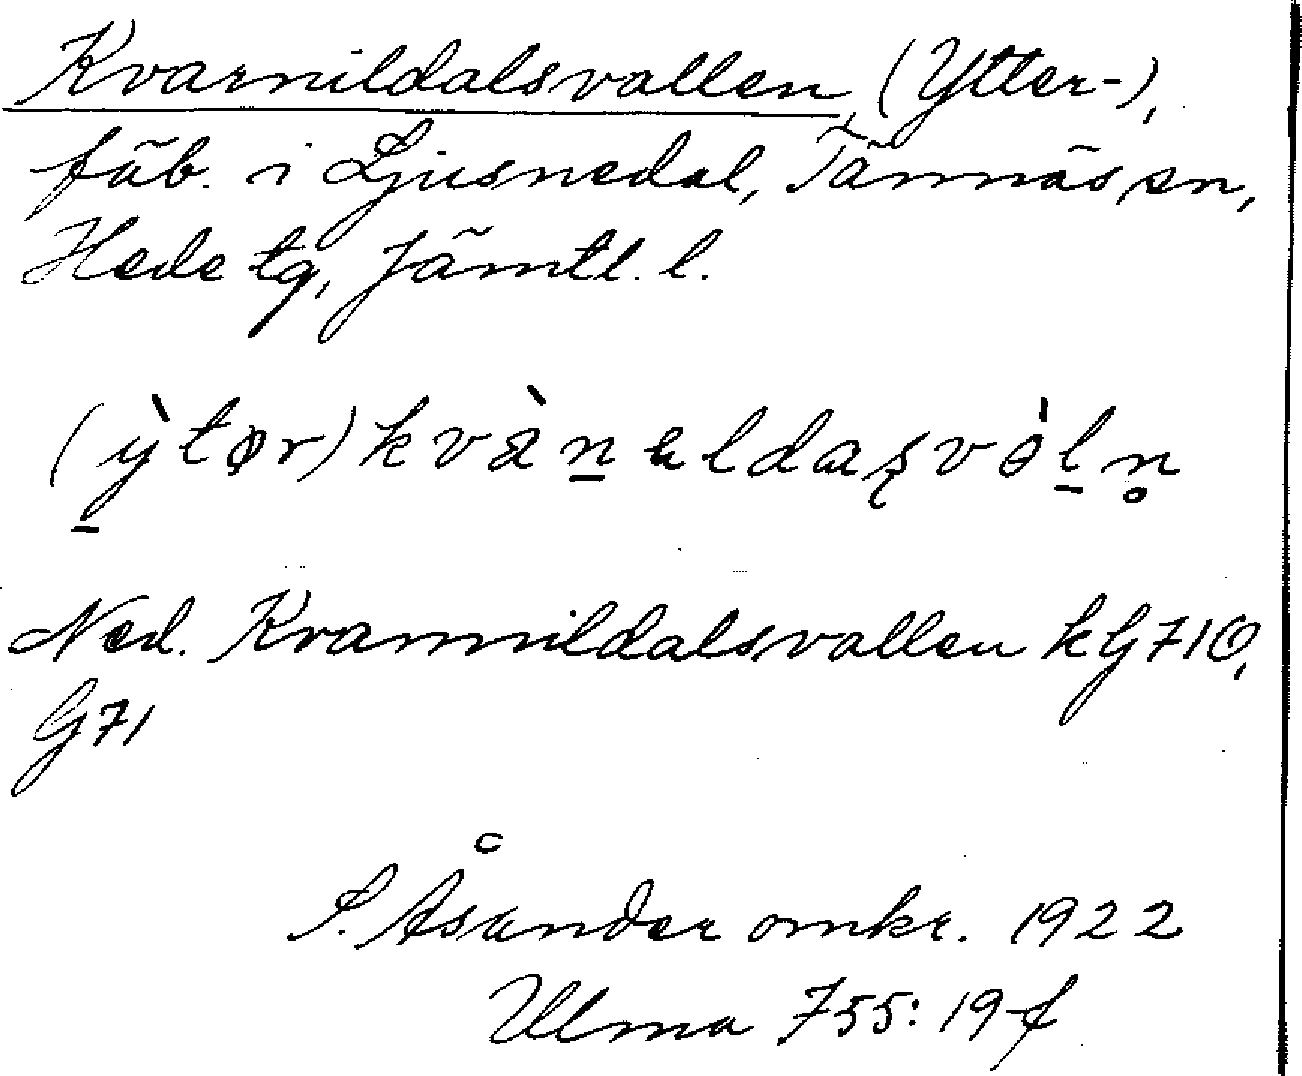 Kvarnildalsvallen, (Ytter-),
fäb. i Ljusnedal, Tännäs sn,
Hede tg, Jämtl. l.
(ỳ̠tør)kvàn̠eldaʂvòl̠n̥
Ned. Kvarnnildalsvallen kG710,
G71
S. Åsander omkr. 1922
Ulma 755: 19 f